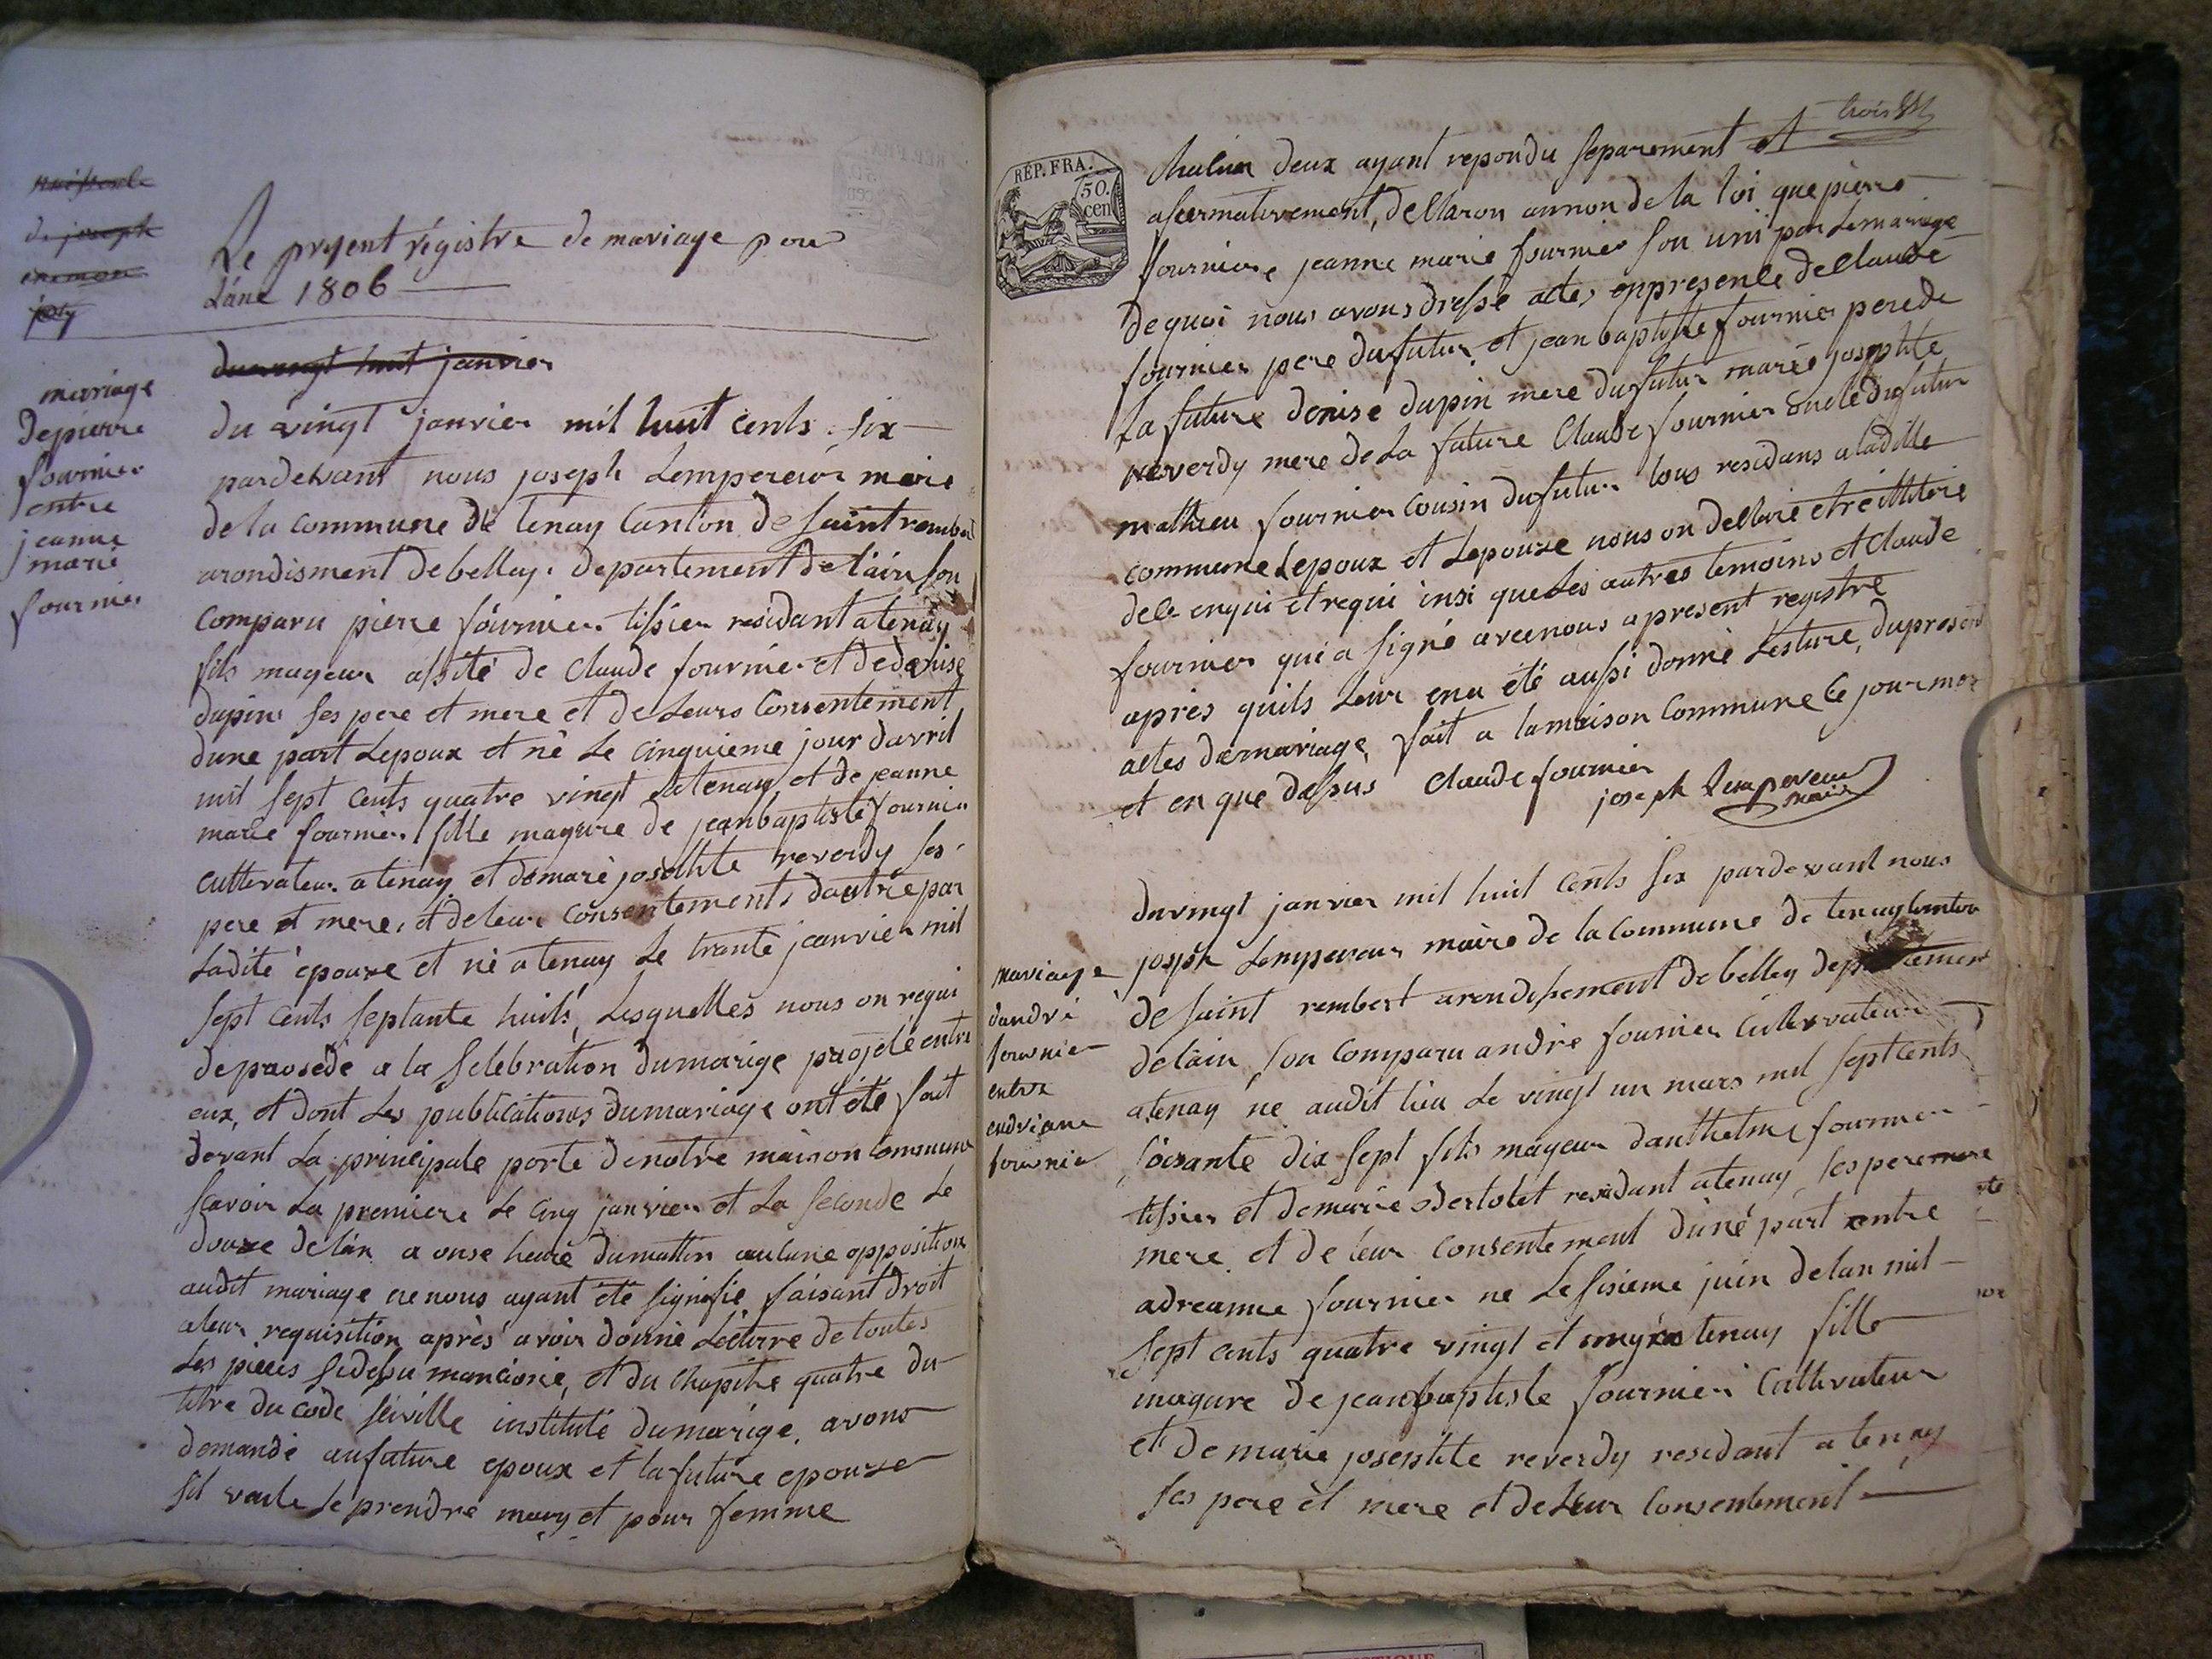 Le present régistre de mariage pour
L'áne 1806
du vingt huit janvier
mariage
depierre
fournier
entre
jeanne
marie
fournier
du vingt janvier mil huit cents six
pardevant nous joseph Lempereur maire
de la commune de tenay Canton de saint rembert
arondisment de belley. departement de l'ain son
comparu pierre fournier tissier residant a tenay
fils mayeur assité de Claude fournier et de denise
dupin ses pere et mere et de Leurs Consentement
dune part Lepoux et né Le Cinquieme jour davril
mil sept cents quatre vingt a tenay et de jeanne
marie fournier fille mayure de jeanbaptiste fournier
cultivateur a tenay et de marie josephte reverdy ses
pere et mere, et de leur Consentements dautre par
Ladite épouze et né a tenay Le trante jeanvier mil
sept cents septante huits, Lesquelles nous on requi
de prosédé a la selebration dumarige projeté entre
eux, et dont Les publications dumariage ont été fait
devant La principale porte de notre maison Commune
scavoir La premiere Le Cinq janvier et La seconde Le
douze de lán a onse heure dumattin aucune opposition
audit mariage ne nous ayant été signifié faisant droit
aleur requisition après avoir donné Lecture de toutes
Les pieces sidessu mancioné, et du Chapitre quatre du
titre du code séville institulé dumarige, avons
demandé aufuture epoux et la future epouze
sil veule se prendre mary et pour femme
trois
RÉP. FRA.
50.
cen
Chalun deux ayant repondu separement et
afeermativement, dellaron aunon de la loi que pierre
fourniere jeanne marie fournier son uni par Lemariage
de quoi nous avons dressé actes enpresence de Claude
fournier pere du futur et jean baptiste fournier pere de
La future denise dupin mere du futur marie josephte
reverdy mere de La future Claude fournier oncle du futur
mathieu fournier Cousin dufutur tous residans a ladille
commune Lepoux et Lepouze nous on dellaré etre illiteré
dele enqui et requi insi que Les autres temoins et Claude
fournier qui a signé avec nous apresent registre
après quils Leur ena été aussi donné Lesture, dupresent
actes demariage, fait a lamaison Commune Ce jour mois
et en que dessus Claude fournier
joseph Lempereur
maire
mariage
dandré
fournier
entre
endriane
fournier
du vingt janvier mil huit cents six pardevant nous
joseph Lempereur maire de la Commune de tenay Canton
de saint rembert arondissement de belley departement
delain son Comparu andré fournier Cultivateur
atenay né audit lieu Le vingt un mars mil sept cents
soisante dix sept fils mayeur danthelme fournier
tissier et demarie Bertolet residant atenay ses pere mere
mere et de leur Consentement d'une part entre
adreanne fournier ne Le sisieme juin delan mil
sept cents quatre vingt et tenay fille
mayure de jeanbaptiste fournier Cultivateur
et de marie josephte reverdy residant a tenay
ses pere et mere et de Leur Consentement